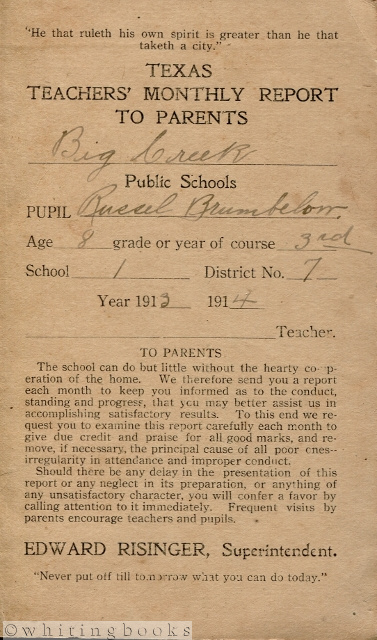 "He that ruleth his own spirit is greater than he that
taketh a city."
TEXAS
TEACHERS' MONTHLY REPORT
TO PARENTS
Big Creek
Public Schools
PUPIL Russel Brumbelow.
Age 8 grade or year of course 3rd
School 1 District No. 7
Year 1913 1914
Teacher.
TO PARENTS
The school can do but little without the hearty co-op-
eration of the home. We therefore send you a report
each month to keep you informed as to the conduct,
standing and progress, that you may better assist us in
accomplishing satisfactory results. To this end we re-
quest you to examine this report carefully each month to
give due credit and praise for all good marks, and re-
move, if necessary, the principal cause of all poor ones--
irregularity in attendance and improper conduct.
Should there be any delay in the presentation of this
report or any neglect in its preparation, or anything of
any unsatisfactory character, you will confer a favor by
calling attention to it immediately. Frequent visits by
parents encourage teachers and pupils.
EDWARD RISINGER, Superintendent.
"Never put off till tomorrow what you can do today."
©whitingbooks